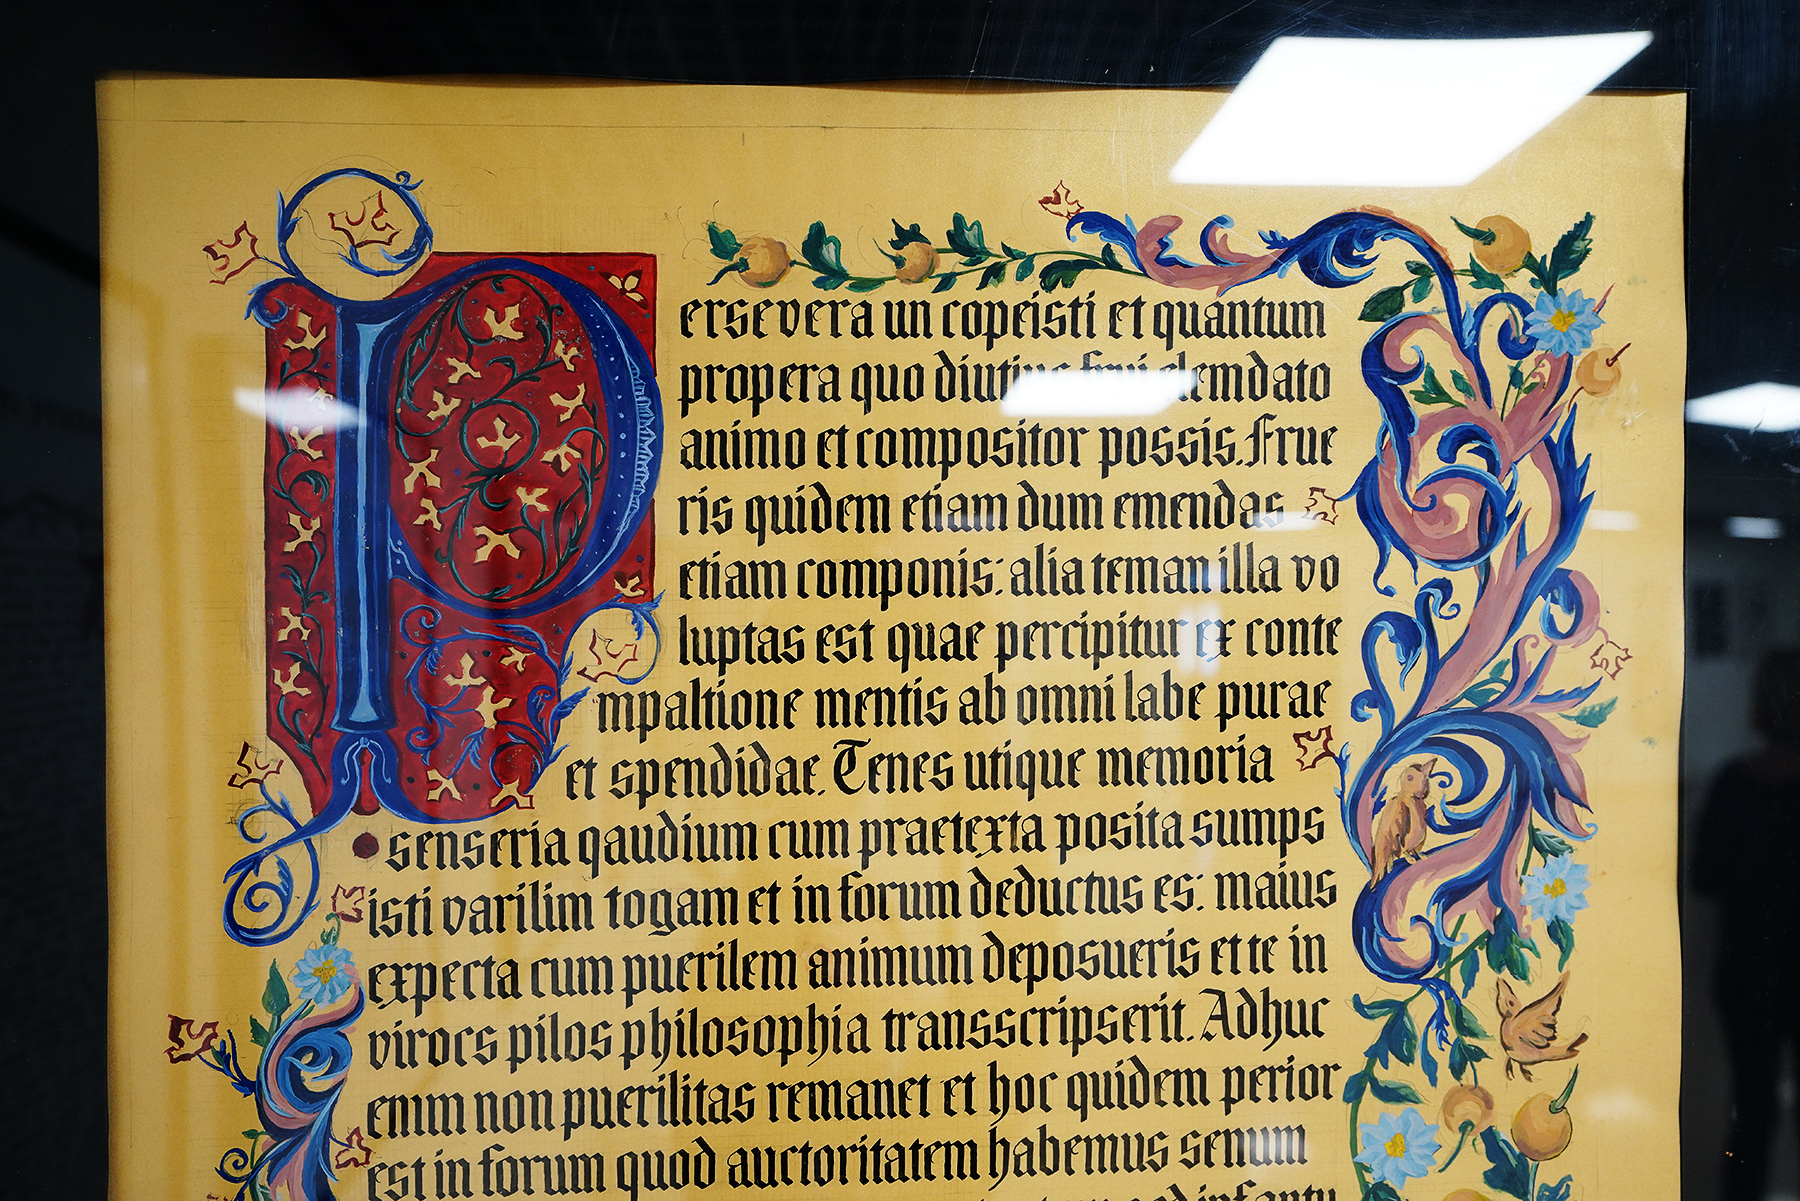 Persevera un copeisti et quantum
propera quo diutius frui elemdato
animo et compositor possis. Frue
ris quidem etiam dum emendas
etiam componis: alia teman illa vo
luptas est quae percipitur ex conte
mpaltione mentis ab omni labe purae
et spendidae. Tenes utique memoria
senseria qaudium cum praetexta posita sumps
isti varilim togam et in forum deductus es: maius
expecta cum puerilem animum deposueris et te in
virocs pilos philosophia transscripserit. Adhuc
enim non puerilitas remanet et hoc quidem perior
est in forum quod auctoritatem habemus senum